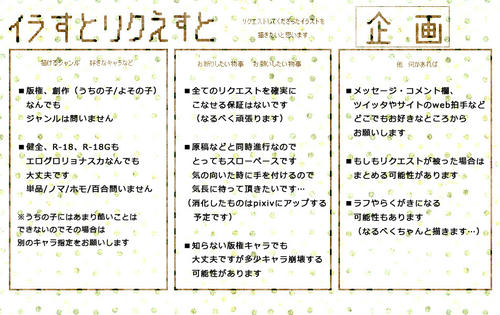 イラすとリクえすと
リクエストしてくださったイラストを
描きたいと思います
企 画
描けるジャンル 好きなキャラなど
■版権、創作（うちの子/よその子）
なんでも
ジャンルは問いません
■健全、R-18、R-18Gも
エログロリョナスカなんでも
大丈夫です
単品/ノマ/ホモ/百合問いません
※うちの子にはあまり酷いことは
できないのでその場合は
別のキャラ指定をお願いします
お断りしたい物事 お願いしたい物事
■全てのリクエストを確実に
こなせる保証はないです
（なるべく頑張ります）
■原稿などと同時進行なので
とってもスローペースです
気の向いた時に手を付けるので
気長に待って頂きたいです…
（消化したものはpixivにアップする
予定です）
■知らない版権キャラでも
大丈夫ですが多少キャラ崩壊する
可能性があります
他 何かあれば
■メッセージ・コメント欄、
ツイッタやサイトのweb拍手など
どこでもお好きなところから
お願いします
■もしもリクエストが被った場合は
まとめる可能性があります
■ラフやらくがきになる
可能性もあります
（なるべくちゃんと描きます…）